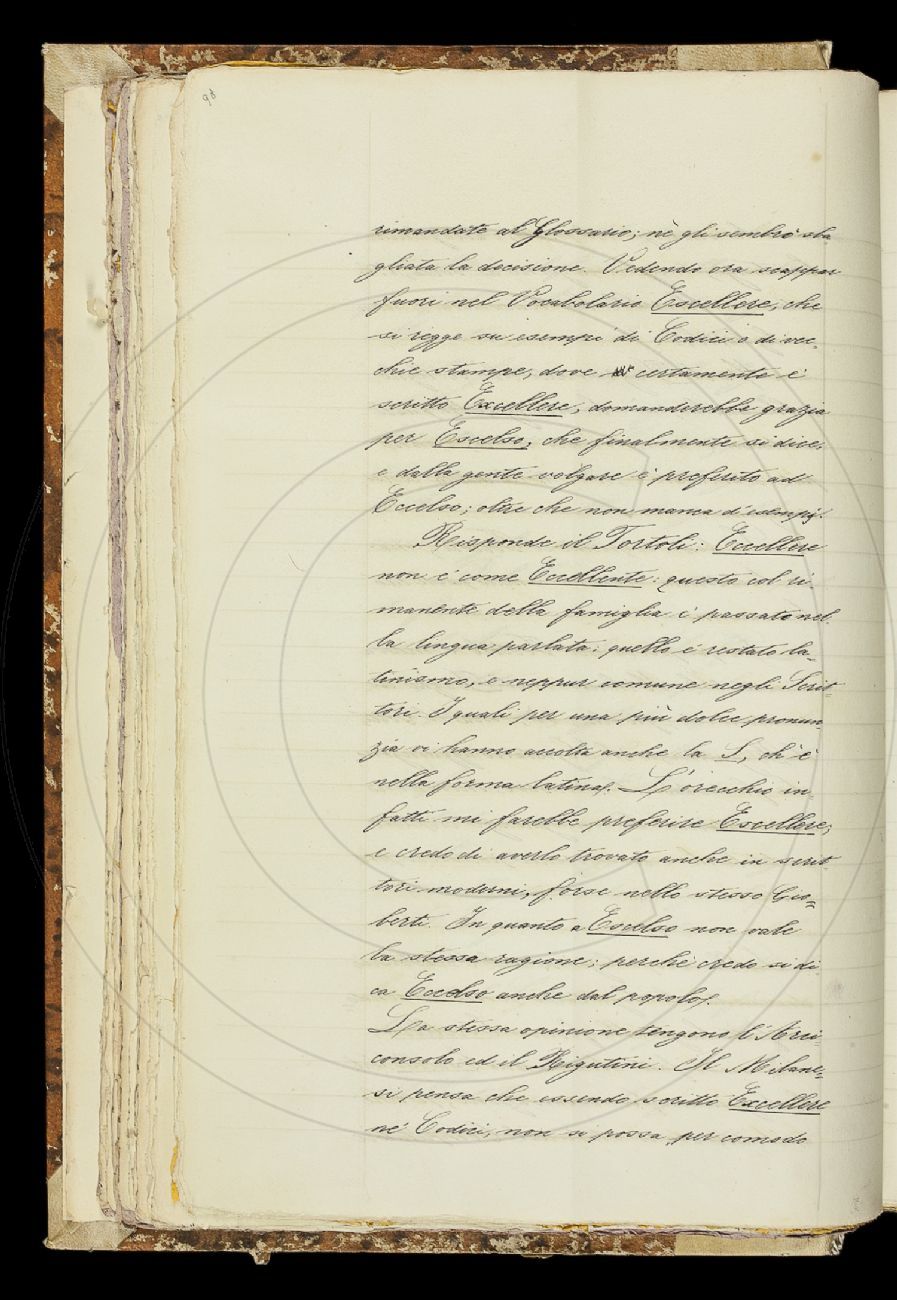 98
rimandate al Glossario; nè gli sembrò sba
gliata la decisione. Vedendo ora scappar
fuori nel Vocabolario Escellere, che
si regge su esempi di Codici o di vec-
chie stampe, dove certamente è
scritto Excellere, domanderebbe grazia
per Escelso, che finalmente si dice,
e dalla gente volgare è preferito ad
Eccelso; oltre che non manca d'esempj.
Risponde il Tortoli: Eccellere
non è come Eccellente: questo col ri-
manente della famiglia è passato nel-
la lingua parlata; quello è restato la-
tinismo, e neppur comune negli Scrit-
tori. I quali per una più dolce pronun-
zia vi hanno accolta anche la S, ch'è
nella forma latina. L'orecchio in-
fatti mi farebbe preferire Escellere,
e credo di averlo trovato anche in scrit-
tori moderni, forse nello stesso Gio-
berti. In quanto a Escelso non vale
la stessa ragione; perchè credo si di
ca Eccelso anche dal popolo.
La stessa opinione tengono l'Arci-
consolo ed il Rigutini. Il Milane-
si pensa che essendo scritto Excellere
ne' Codici, non si possa per comodo